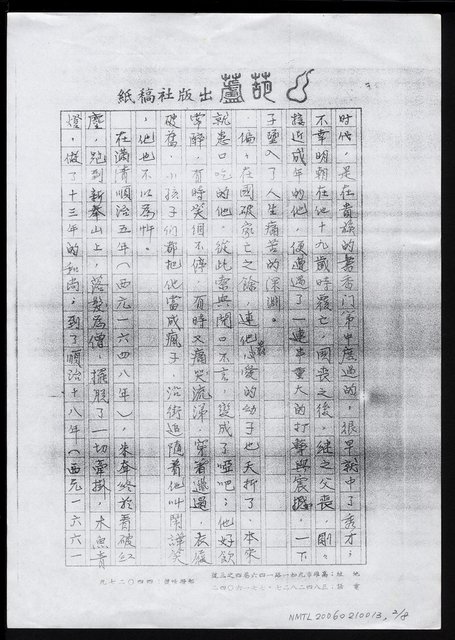 葫蘆出版社稿紙
時代，是在貴族的書香門第中度過的，很早就中了秀才；
不幸明朝在他十九歲時覆亡，國喪之後，繼之父喪，剛々
接近成年的他，便遭遇了一連串重大的打擊與震撼，一下
子墮入了人生痛苦的深淵。
偏々在國破家亡之餘，連他最心愛的幼子也夭折了，本來
就患口吃的他，從此索興閉口不言，變成了啞吧；他好飲
常醉，有時笑個不停，有時又痛哭流涕，穿著邋遢，衣履
破舊，小孩子們都把他當成瘋子，沿街追隨着他叫鬧譁笑
，他也不以為忤。
在滿清順治五年（西元一六四八年），朱耷終於看破紅
塵，跑到新奉山上，落髮為僧，擺脫了一切牽掛，木魚青
燈，做了十三年的和尚。到了順治十八年（西元一六六一
地址：高雄市九如一路一四六巷四之三號
電話：三八四二八二七・七七一六〇四二
郵撥帳號：四四〇二七九
NMTL20060210013, 2/8